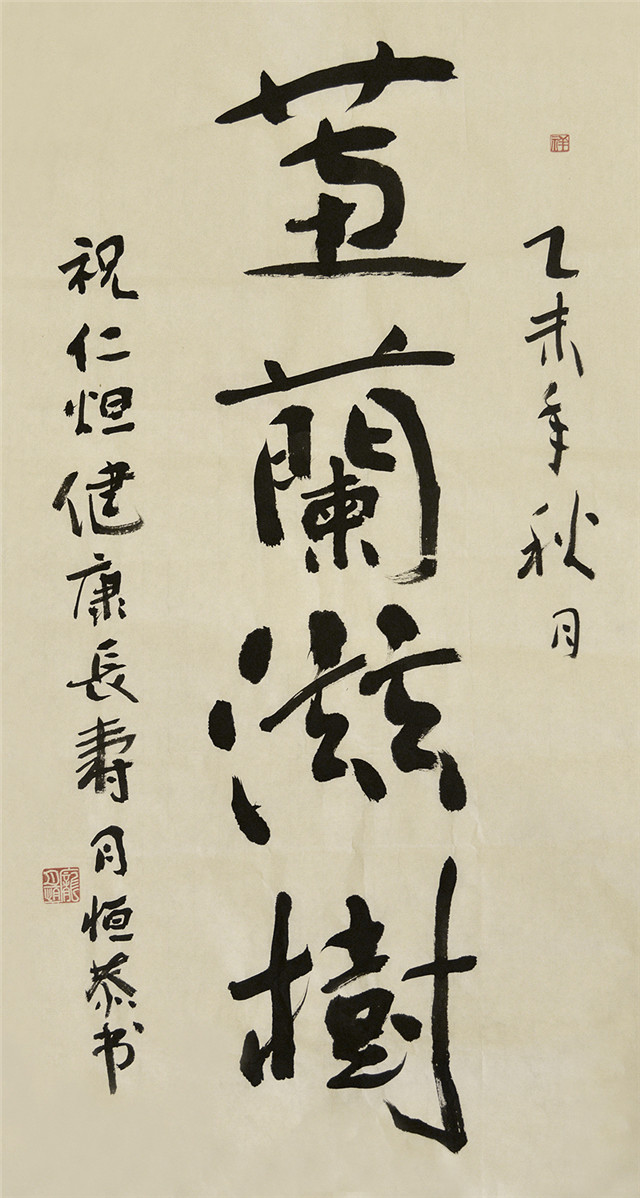 乙未年秋月
蕙蘭滋樹
祝仁炟健康長壽月恒恭书